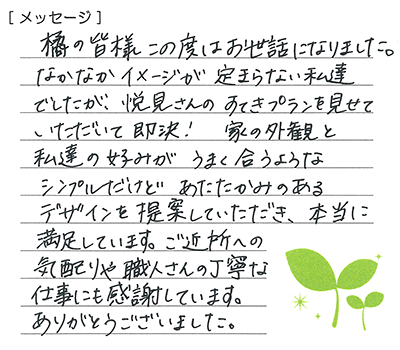 [ メッセージ ]
橘の皆様 この度はお世話になりました。
なかなかイメージが 定まらない私達
でしたが、悦見さんの すてきプランを見せて
いただいて 即決！ 家の外観と
私達の好みが うまく合うような
シンプルだけど あたたかみのある
デザインを提案していただき、本当に
満足しています。ご近所への
気配りや職人さんの丁寧な
仕事にも感謝しています。
ありがとうございました。